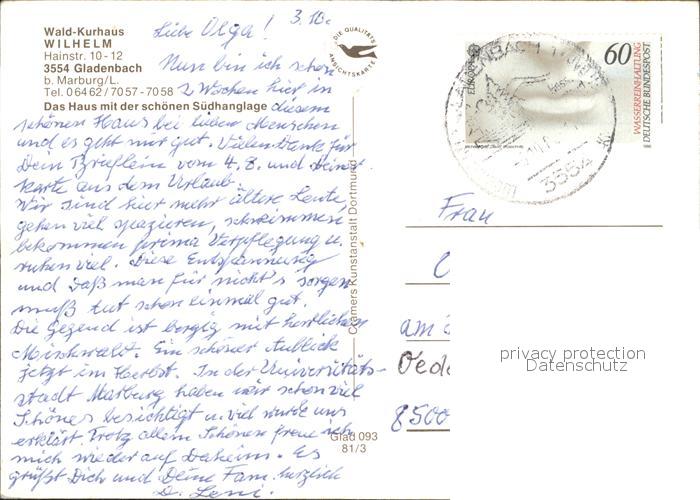 Wald-Kurhaus
WILHELM
Hainstr. 10-12
3554 Gladenbach
b. Marburg/L.
Tel. 06462/7057-7058
Das Haus mit der schönen Südhanglage
3.10.
Liebe Olga!
Nun bin ich schon
2 Wochen hier in
diesem
schönen Haus bei lieben Menschen
und es geht mir gut. Vielen Dank für
Dein Brieflein vom 4.8. und Deine
Karte aus dem Urlaub.
Wir sind hier mehr ältere Leute,
gehen viel spazieren, schwimmen,
bekommen prima Verpflegung u.
ruhen viel. Diese Entspannung
und daß man für nicht's sorgen
muß tut schon einmal gut.
Die Gegend ist bergig mit herrlichem
Mischwald. Ein schöner Anblick
jetzt im Herbst. In der Universitäts-
stadt Marburg haben wir schon viel
Schönes besichtigt u. viel wurde uns
erklärt. Trotz allem Schönen freue ich
mich wieder auf Daheim. Es
grüßt Dich und Deine Fam. herzlich
D. Leni.
DIE QUALITÄTS
ANSICHTSKARTE
Cramers Kunstanstalt Dortmund
Glad 093
81/3
EUROPA
60
WASSERREINHALTUNG
DEUTSCHE BUNDESPOST
GLADENBACH 1
3554
Frau
am
8500
privacy protection
Datenschutz